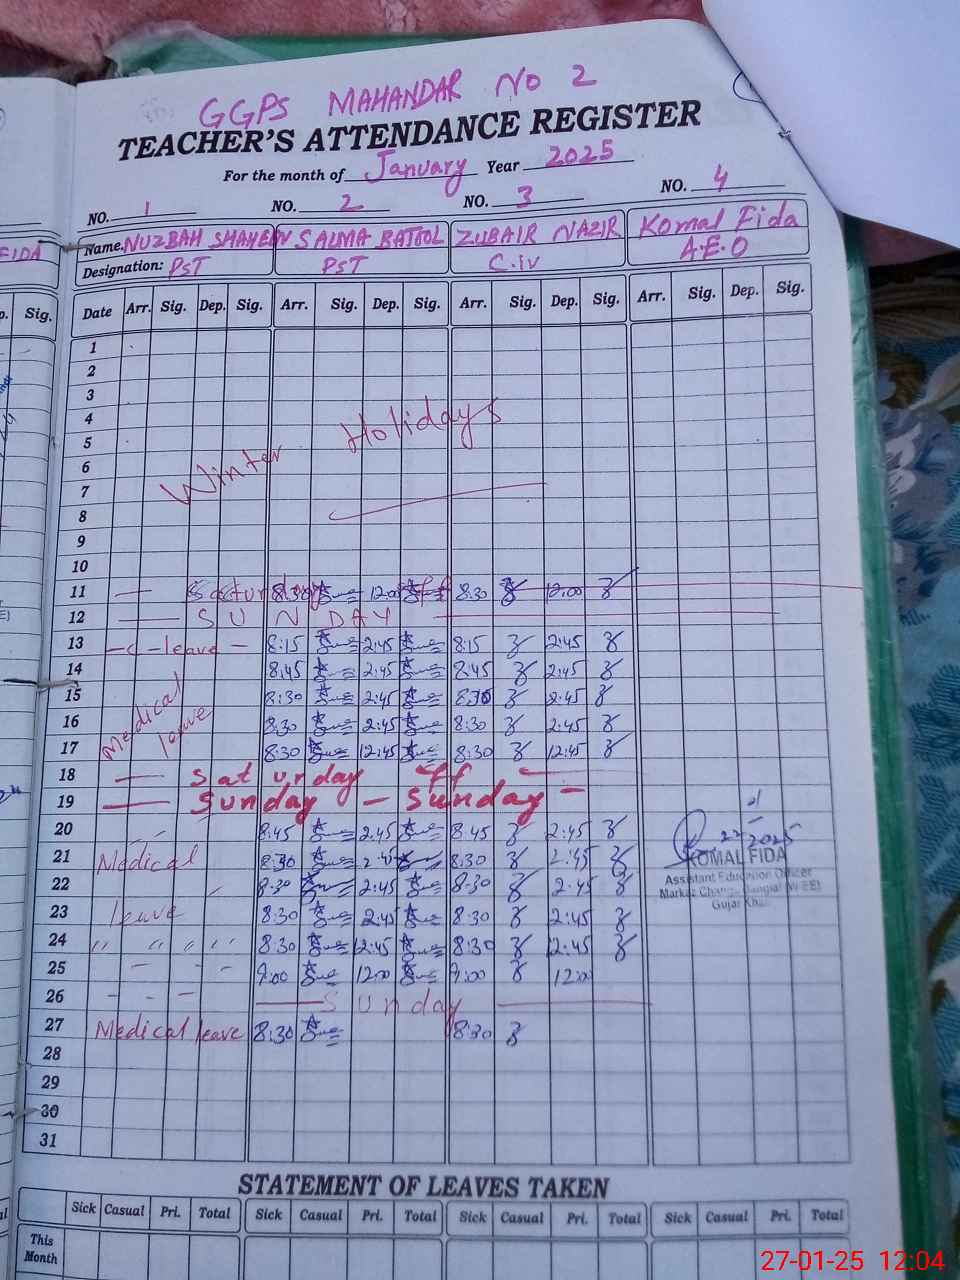 GGPS MAHANDAR NO 2
TEACHER'S ATTENDANCE REGISTER
For the month of January Year 2025
NO. 1 NO. 2 NO. 3 NO. 4
Name. NUZBAH SHAHEEN SALMA BATOOL ZUBAIR NAZIR Komal Fida
Designation: PST PST C.iv A.E.O
FIDA
Sig. Date Arr. Sig. Dep. Sig. Arr. Sig. Dep. Sig. Arr. Sig. Dep. Sig. Arr. Sig. Dep. Sig.
1
2
3
4
5
6
7
8
9
10
Winter Holidays
11 Saturday 8:30 12:00 off 8:30 12:00
12 SUNDAY
13 -C-leave- 8:15 2:45 8:15 2:45
14 8:45 2:45 8:45 2:45
15 Medical 8:30 2:45 8:30 2:45
16 leave 8:30 2:45 8:30 2:45
17 8:30 12:45 8:30 12:45
18 Saturday off
19 Sunday - Sunday -
20 8:45 2:45 8:45 2:45
21 Medical 8:30 2:45 8:30 2:45
22 8:30 2:45 8:30 2:45
23 leave 8:30 2:45 8:30 2:45
24 " " " " 8:30 12:45 8:30 12:45
25 - - 9:00 12:00 9:00 12:00
26 - - - Sunday
27 Medical leave 8:30 8:30
28
29
30
31
KOMAL FIDA
Assistant Education Officer
Gujar Khan
STATEMENT OF LEAVES TAKEN
Sick Casual Pri. Total Sick Casual Pri. Total Sick Casual Pri. Total Sick Casual Pri. Total
This Month
27-01-25 12:04